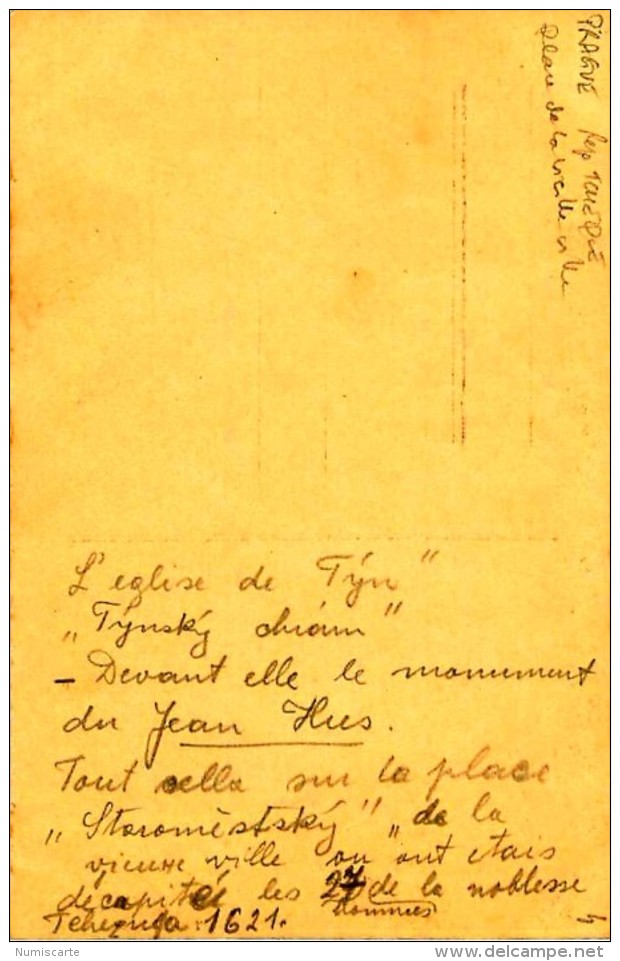 PRAGUE Rep TCHEQUE
Place de la vieille ville
L'eglise de Týn"
„Týnský chrám"
– Devant elle le monument
du Jean Hus.
Tout cella sur la place
„Staroměstský" „de la
vieuxe ville ou ont etais
décapité les 27 de la noblesse
hommes
1621.
Numiscarte
delcampe.net